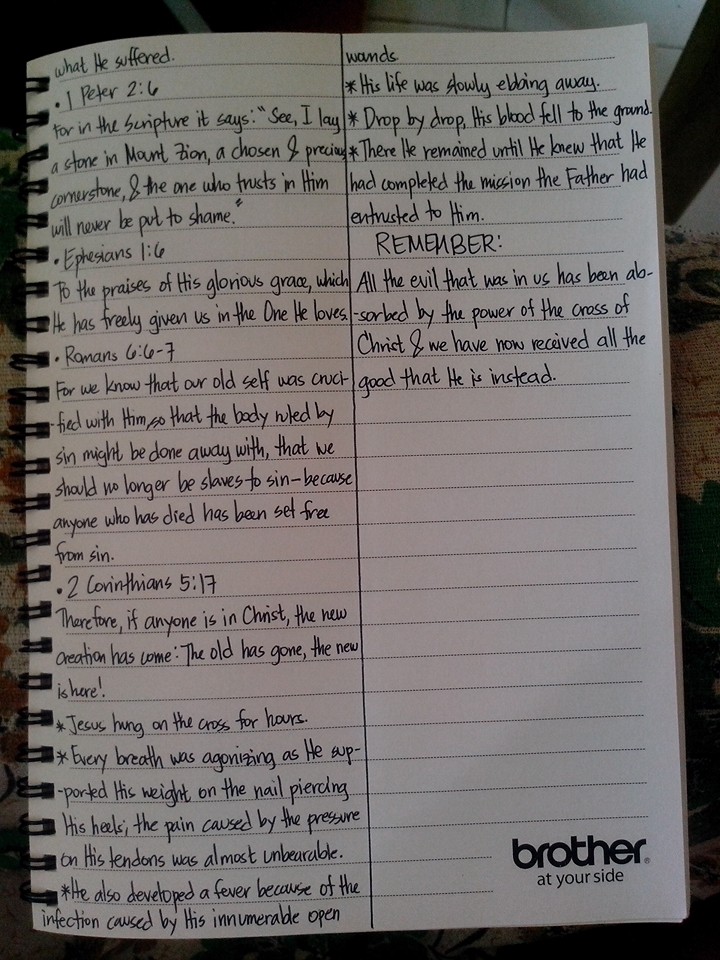 what He suffered.
• 1 Peter 2:6
For in the Scripture it says: "See, I lay
a stone in Mount Zion, a chosen & precious
cornerstone, & the one who trusts in Him
will never be put to shame."
• Ephesians 1:6
To the praises of His glorious grace, which
He has freely given us in the One He loves.
• Romans 6:6-7
For we know that our old self was cruci-
-fied with Him, so that the body ruled by
sin might be done away with, that we
should no longer be slaves to sin-because
anyone who has died has been set free
from sin.
• 2 Corinthians 5:17
Therefore, if anyone is in Christ, the new
creation has come: The old has gone, the new
is here!
* Jesus hung on the cross for hours.
* Every breath was agonizing as He sup-
-ported His weight on the nail piercing
His heels; the pain caused by the pressure
on His tendons was almost unbearable.
* He also developed a fever because of the
infection caused by His innumerable open
wounds
* His life was slowly ebbing away.
* Drop by drop, His blood fell to the ground.
* There He remained until He knew that He
had completed the mission the Father had
entrusted to Him.
REMEMBER:
All the evil that was in us has been ab-
-sorbed by the power of the cross of
Christ & we have now received all the
good that He is instead.
brother®
at your side